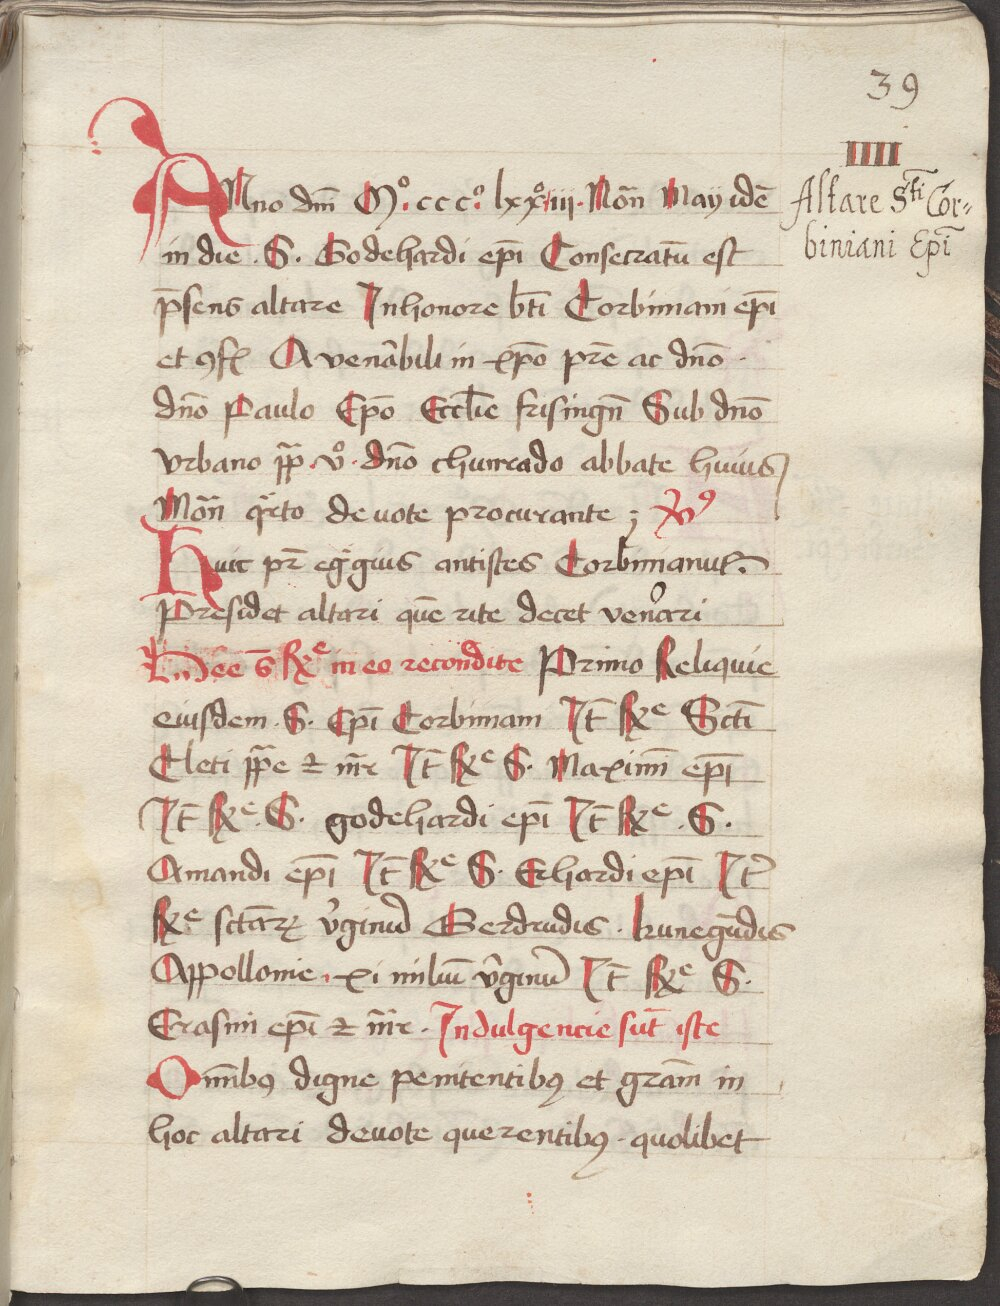 39
IIII
Altare S^ti Cor-
biniani Epī
ANno dm̄ M°. ccc.° lxx°iii. Nōn Maÿ idē
in die . S. Godehardi ep̄i Consecratū est
p̄sens altare In honore bt̄i Corbiniani ep̄i
et ꝯf A venābili in xp̄o pr̄e ac dn̄o
dn̄o Paulo Ep̄o Eccl̄ie frisingn̄ Sub dn̄o
Vrbano pp̄ . v° . dn̄o chunrado abbate huius
Mōn q̄rto deuote procurante ; Vꝰ
Huic pr̄ egͥgius antistes Corbinianus .
Presidet altari quē rite decet venerari
Hee s̄ Rx^e in eo recondite Primo Reliquie
eiusdem . S. Ep̄i Corbiniani It̄ Rx^e Sct̄i
Cleti pp̄e ⁊ mr̄r It̄ Rx^e S. Maximi ep̄i
It̄ Rx^e . S. godehardi ep̄i It̄ Rx^e . S.
Amandi ep̄i It̄ Rx^e S. Erhardi ep̄i It̄
Rx^e sctāꝝ v̓ginū Gerdrudis . kunegūdis
Appollonie . xi miliū v̓ginū It̄ Rx^e S.
Erasmi ep̄i ⁊ mr̄r . Indulgencie sūt iste
Om̄ibꝰ digne penitentibꝰ et grām in
hoc altari deuote querentibꝰ . quolibet